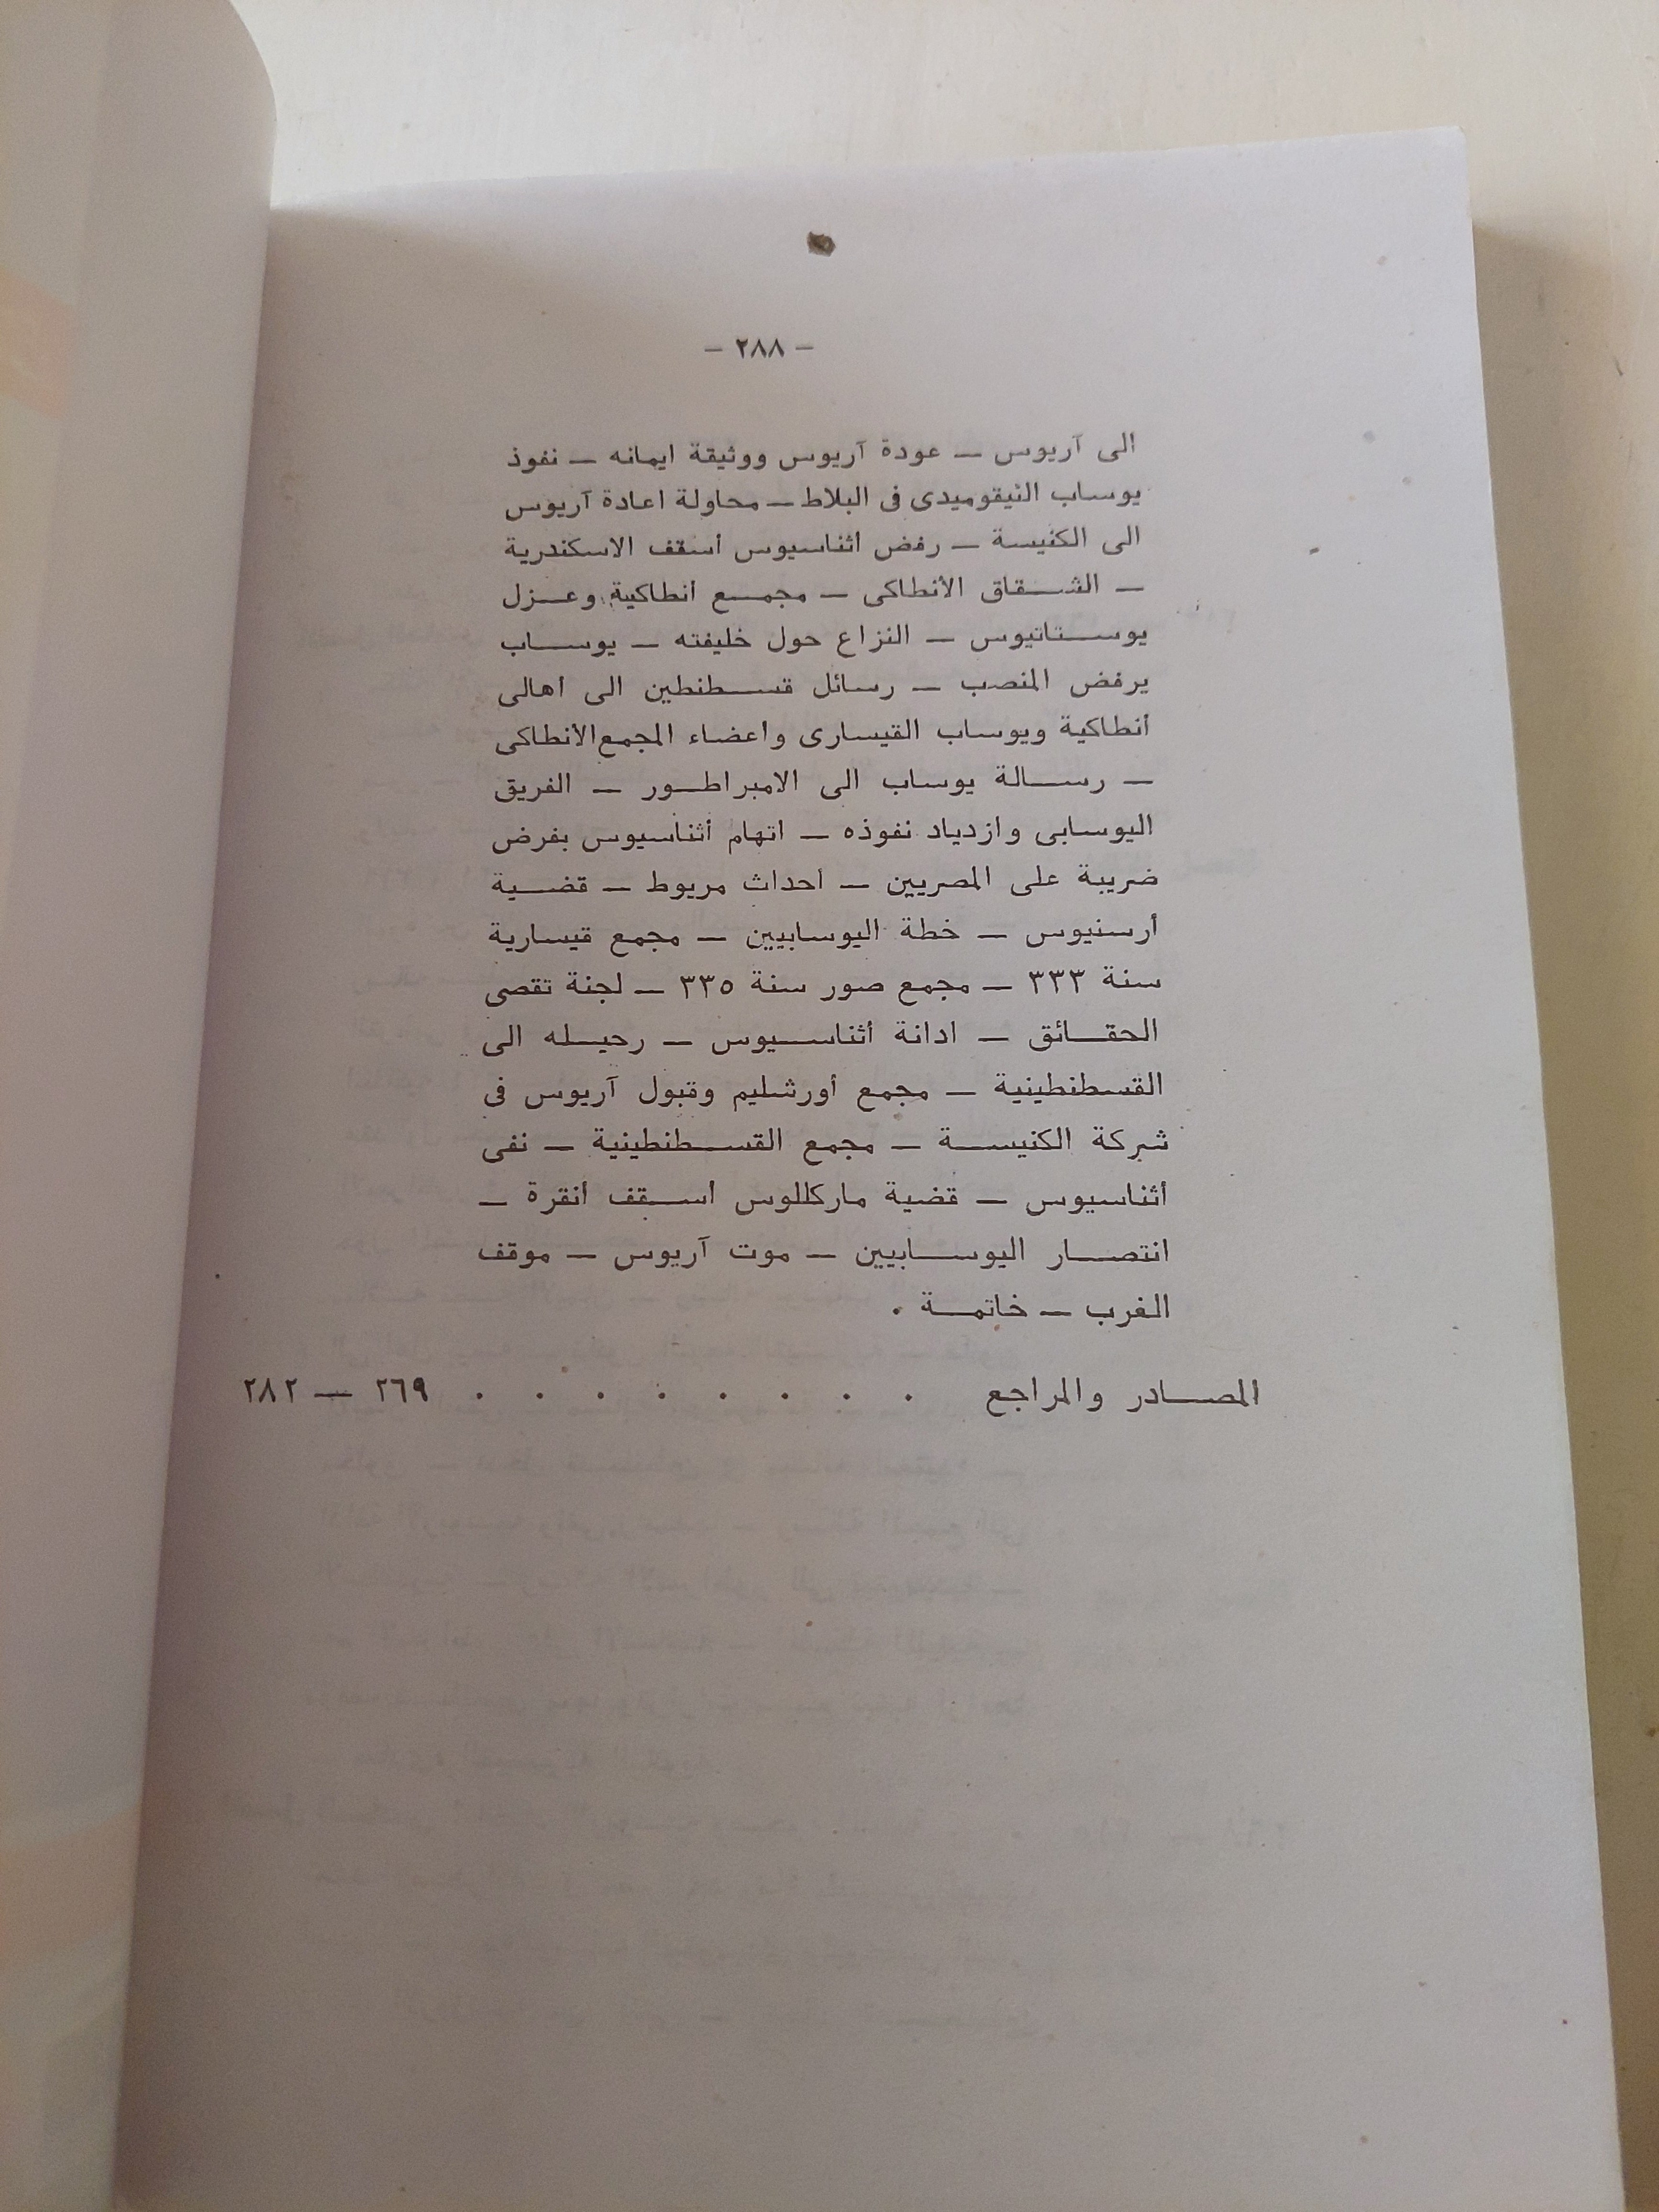 — ٢٨٨ —
الى آريوس — عودة آريوس ووثيقة ايمانه — نفوذ
يوساب النيقوميدى فى البلاط — محاولة اعادة آريوس
الى الكنيسة — رفض أثناسيوس أسقف الاسكندرية
— الشقاق الأنطاكى — مجمع انطاكية وعزل
يوستاتيوس — النزاع حول خليفته — يوساب
يرفض المنصب — رسائل قسطنطين الى اهالى
أنطاكية ويوساب القيسارى واعضاء المجمع الأنطاكى
— رسالة يوساب الى الامبراطور — الفريق
اليوسابى وازدياد نفوذه — اتهام أثناسيوس بفرض
ضريبة على المصريين — أحداث مريوط — قضية
أرسنيوس — خطة اليوسابيين — مجمع قيسارية
سنة ٣٣٣ — مجمع صور سنة ٣٣٥ — لجنة تقصى
الحقائق — ادانة أثناسيوس — رحيله الى
القسطنطينية — مجمع أورشليم وقبول آريوس فى
شركة الكنيسة — مجمع القسطنطينية — نفى
أثناسيوس — قضية ماركللوس أسقف أنقرة —
انتصار اليوسابيين — موت آريوس — موقف
الغرب — خاتمة .
المصادر والمراجع . . . . . . . . ٢٦٩ — ٢٨٢